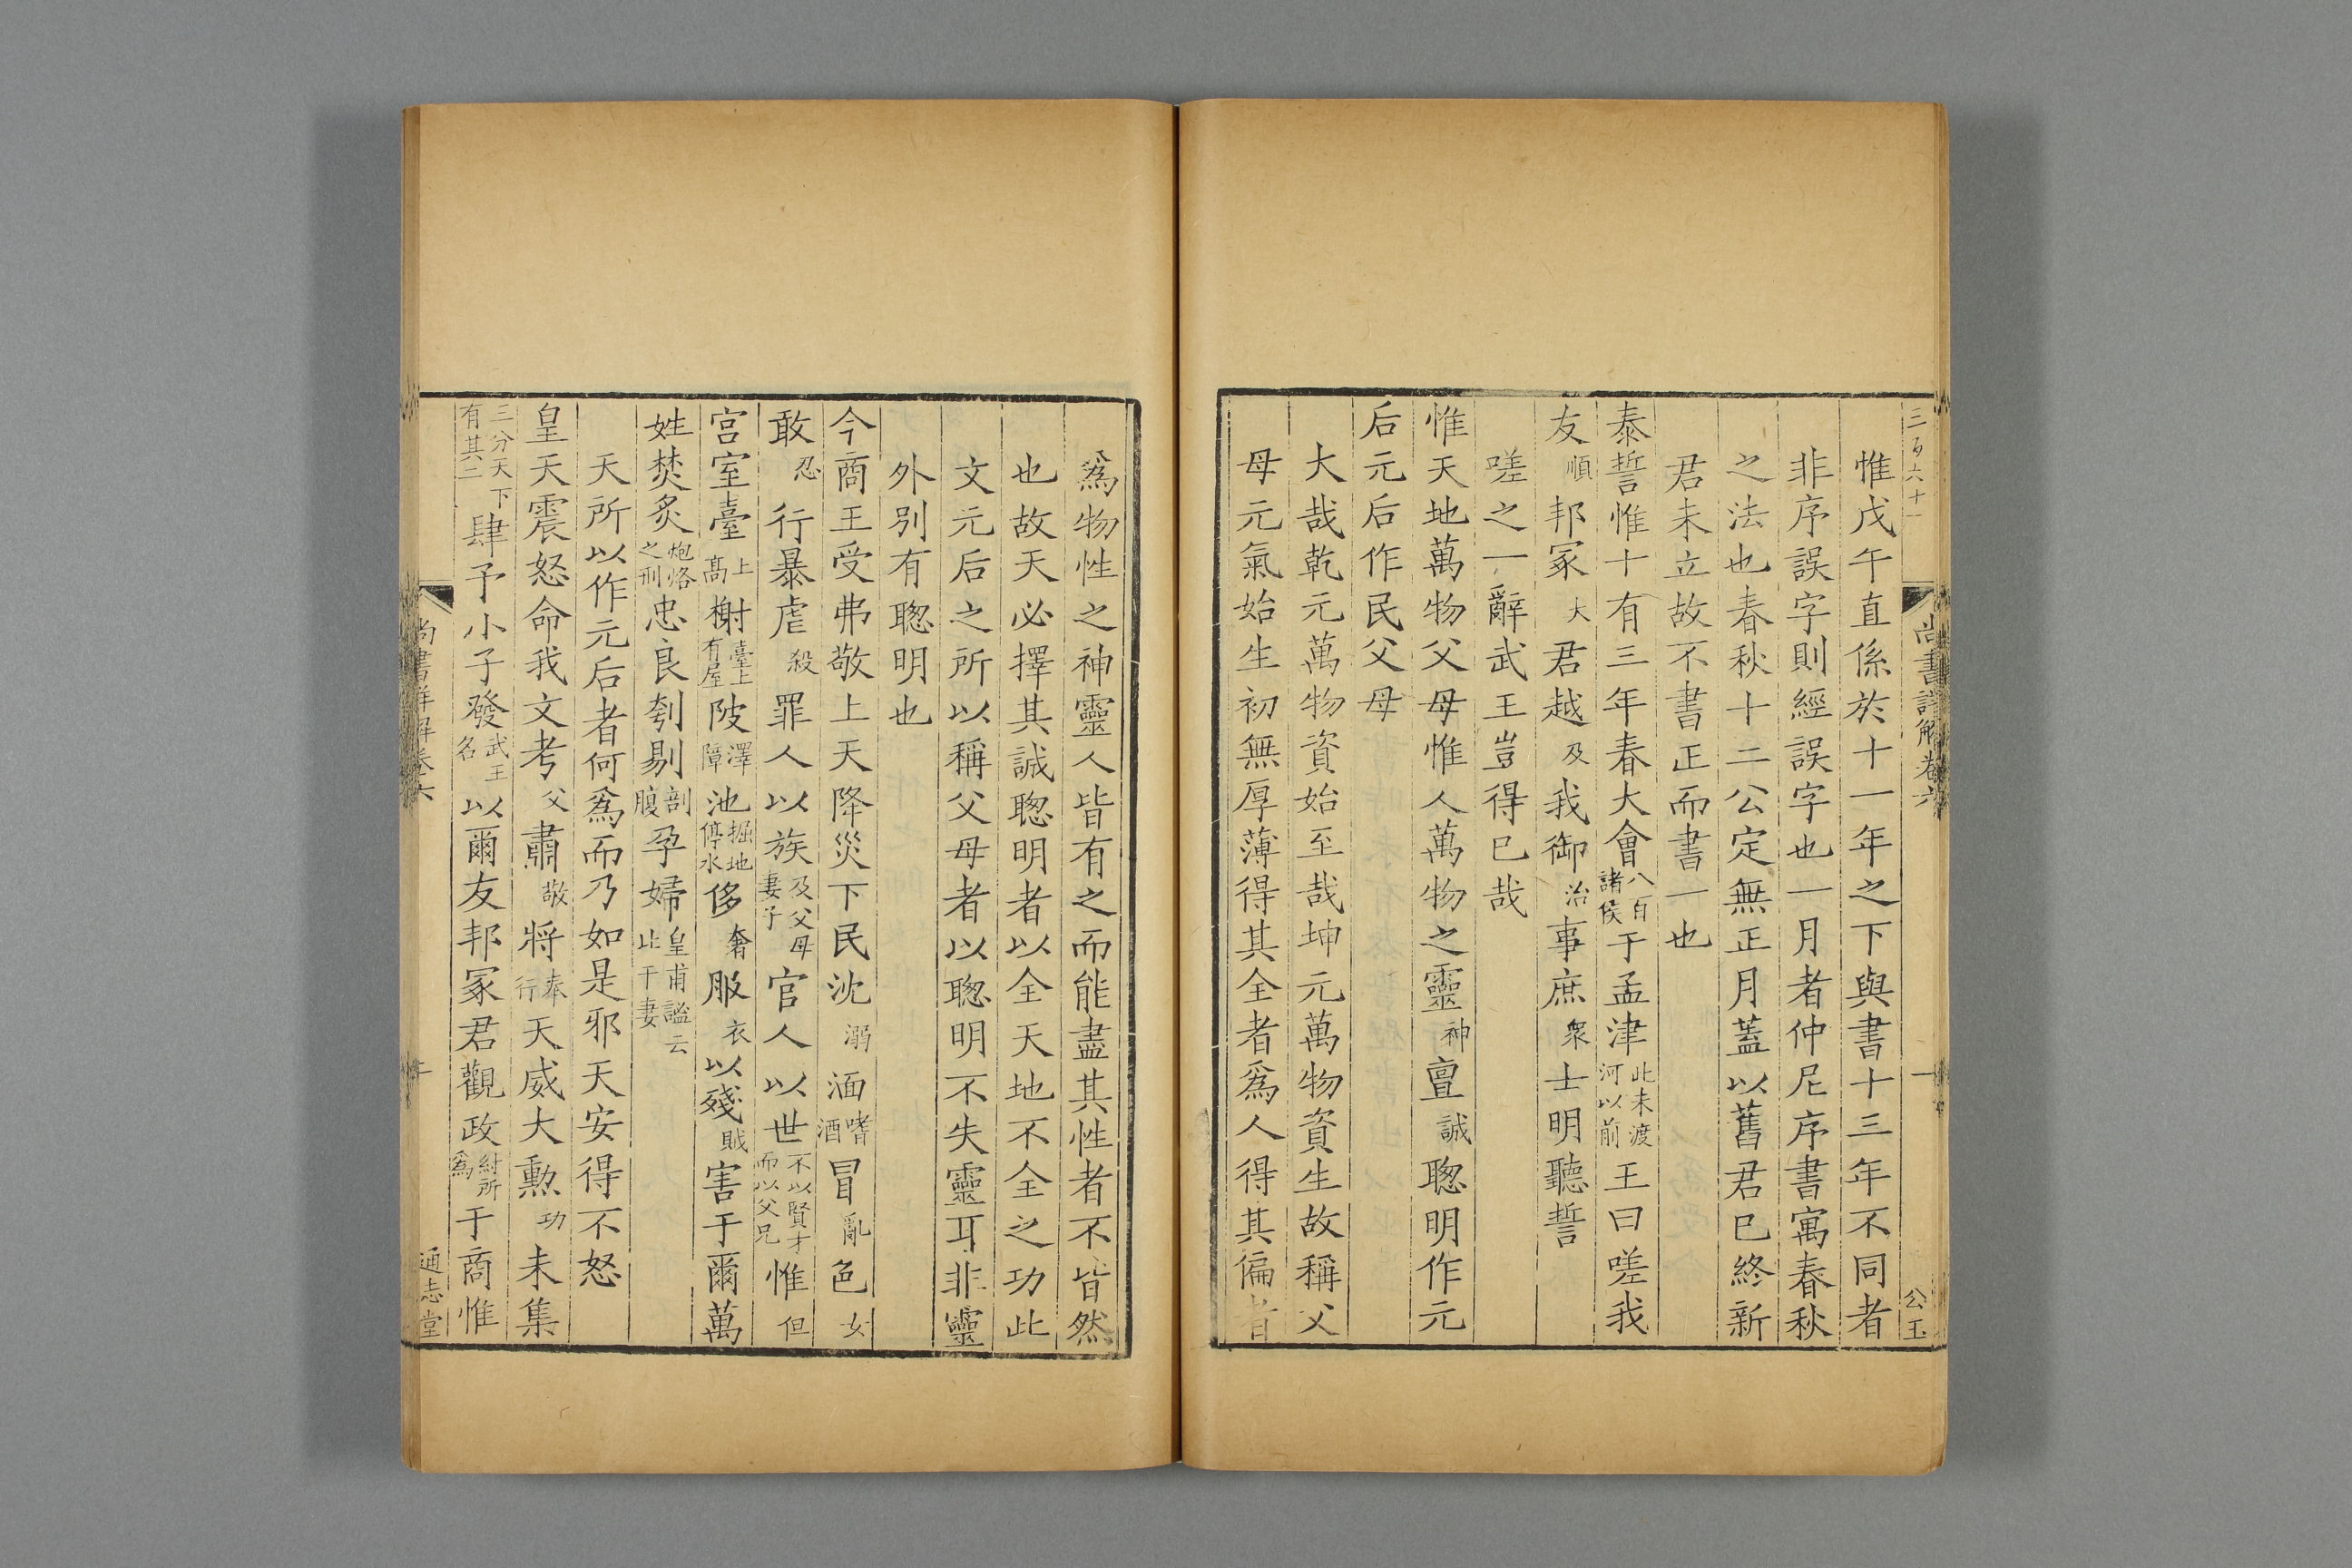 三百六十一
尚書詳解卷六
一
公玉
惟戊午直係於十一年之下與書十三年不同者
非序誤字則經誤字也一月者仲尼序書寓春秋
之法也春秋十二公定無正月蓋以舊君已終新
君未立故不書正而書一也
泰誓惟十有三年春大會八百諸侯于孟津此未渡河以前王曰嗟我
友順邦冢大君越及我御治事庶衆士明聽誓
嗟之一辭武王豈得已哉
惟天地萬物父母惟人萬物之靈神亶誠聰明作元
后元后作民父母
大哉乾元萬物資始至哉坤元萬物資生故稱父
母元氣始生初無厚薄得其全者爲人得其偏者
爲物性之神靈人皆有之而能盡其性者不皆然
也故天必擇其誠聰明者以全天地不全之功此
文元后之所以稱父母者以聰明不失靈耳非靈
外別有聰明也
今商王受弗敬上天降災下民沈溺湎嗜酒冒亂色女
敢忍行暴虐殺罪人以族及父母妻子官人以世不以賢才而以父兄惟但
宮室臺上高榭臺上有屋陂澤障池掘地停水侈奢服衣以殘賊害于爾萬
姓焚炙炮烙之刑忠良刳剔剖腹孕婦皇甫謐云比干妻
天所以作元后者何爲而乃如是邪天安得不怒
皇天震怒命我文考父肅敬將奉行天威大勲功未集
三分天下有其二肆予小子發武王名以爾友邦冢君觀政紂所爲于商惟
尚書詳解卷六
通志堂